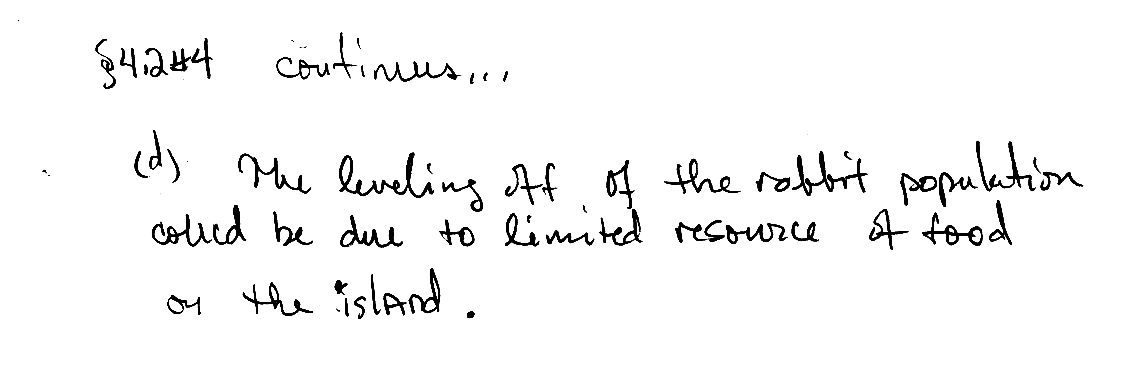 §4.2#4 continues...
(d) The leveling off of the rabbit population
could be due to limited resource of food
on the island.